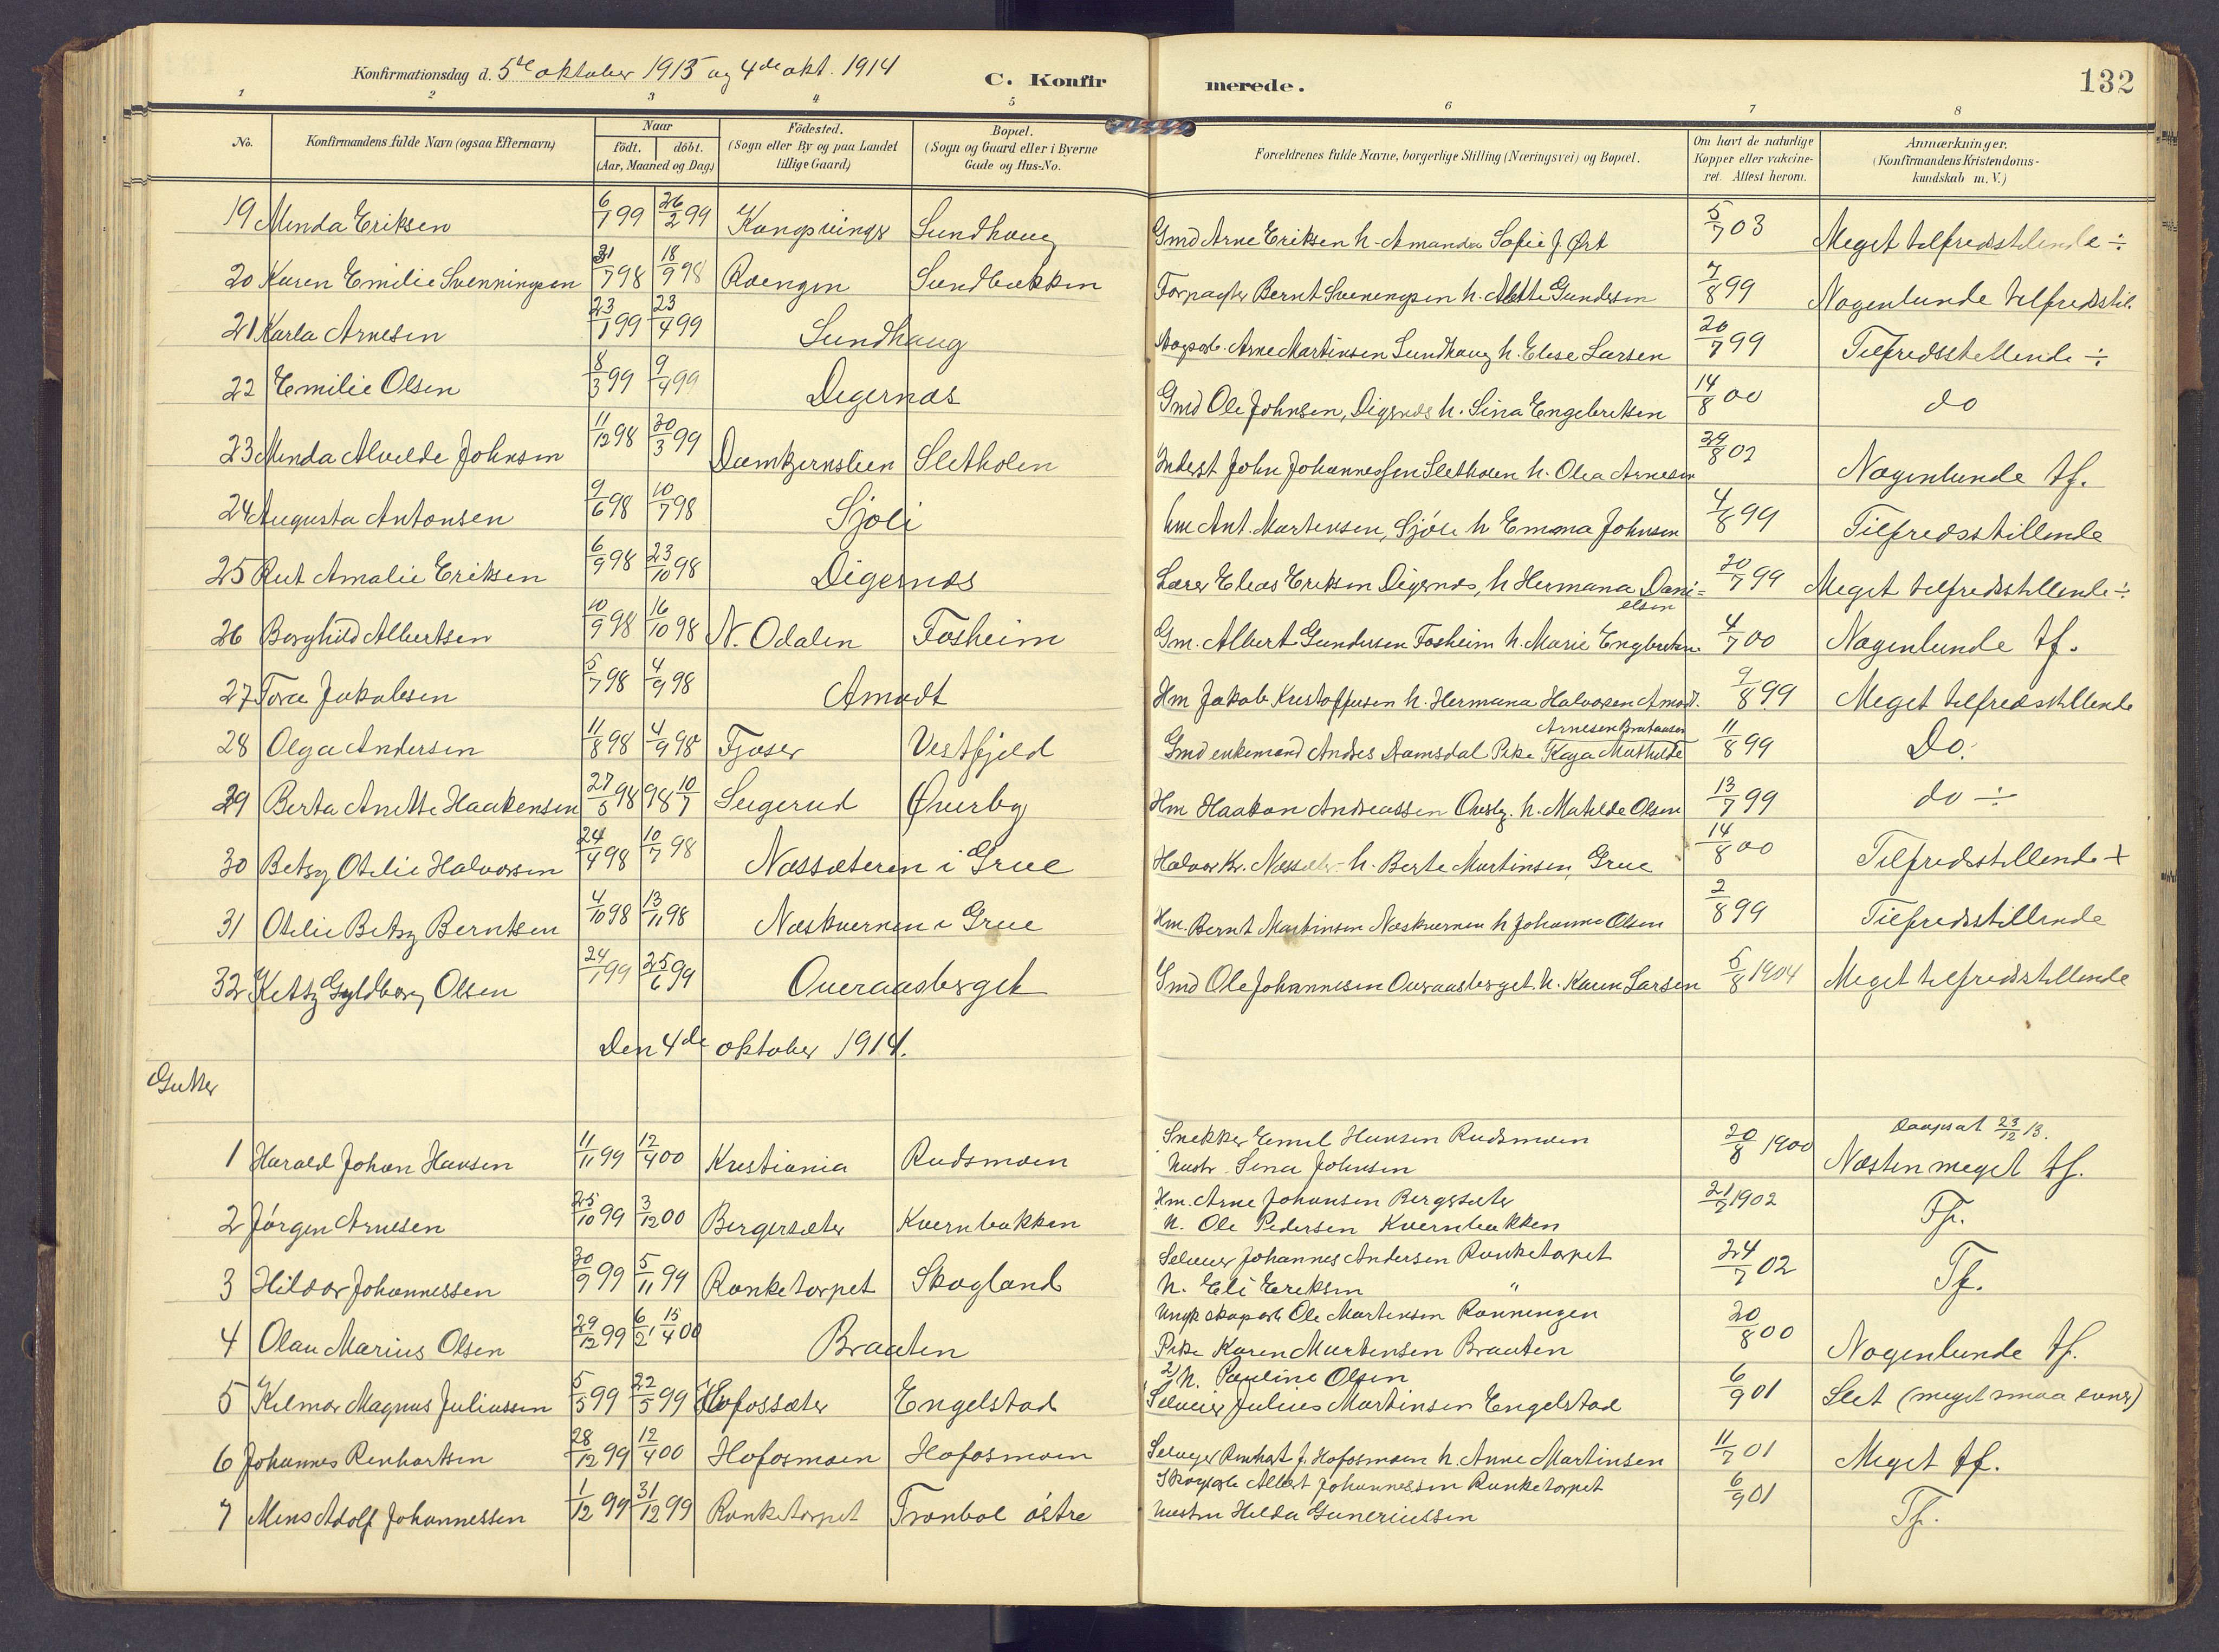 Konfirmationsdag d. 5te oktober 1913 og 4de okt. 1914
C. Konfirmerede.
132
1 2 3 4 5 6 7 8
No.
Konfirmandens fulde Navn (ogsaa Efternavn)
Naar
födt. döbt.
(Aar, Maaned og Dag)
Födested.
(Sogn eller By og paa Landet
tillige Gaard)
Bopæl.
(Sogn og Gaard eller i Byerne
Gade og Hus-No.
Forældrenes fulde Navne, borgerlige Stilling (Næringsvei) og Bopæl.
Om havt de naturlige
Kopper eller vakcine-
ret. Attest herom.
Anmærkninger.
(Konfirmandens Kristendoms-
kundskab m. V.)
19 Minda Eriksen 6/1 99 26/2 99 Kongsvinger Sundhaug Gmd Arne Eriksen h. Amanda Sofie J. Ørt 5/7 03 Meget tilfredsstillende ÷
20 Karen Emilie Svenningsen 31/7 98 18/9 98 Sundbakken Forpagter Bernt Svenningsen h. Alette Gundersen 7/8 99 Nogenlunde tilfredsstil.
21 Karla Arnesen 23/1 99 23/4 99 Sundhaug Arne Martinsen Sundhaug h. Elise Larsen 20/7 99 Tilfredsstellende ÷
22 Emilie Olsen 8/3 99 9/4 99 Digernæs Gmd Ole Johnsen, Digernæs h. Lina Engebretsen 14/8 00 do
23 Minda Alvilde Johnsen 11/12 98 30/3 99 Damtjernslien Sletholen Inderst John Johannessen Sletholen h. Olea Arnesen 29/8 02 Nogenlunde tf.
24 Augusta Antonsen 9/6 98 10/7 98 Sjøli hm Ant. Martinsen, Sjøli h Emma Johnsen 4/8 99 Tilfredsstillende
25 Rut Amalie Eriksen 6/9 98 23/10 98 Digernæs Lærer Elias Eriksen Digernæs, h Hermana Dani=
elsen 20/7 99 Meget tilfredsstillende ÷
26 Borghild Albertsen 10/9 98 16/10 98 N. Odalen Fosheim Gm. Albert Gundersen Fosheim h. Marie Engbretsen 4/7 00 Nogenlunde tf.
27 Tora Jakobsen 5/7 98 4/9 98 Amodt Hm Jakob Kristoffersen h. Hermana Halvorsen Amodt. 9/8 99 Meget tilfredsstillende
Arnesen Brataasen
28 Olga Andersen 11/8 98 4/9 98 Fjøser Vestfjeld Gmd enkemand Andreas Damsdal Pike Kaja Mathilde 11/8 99 Do.
29 Berta Anette Haakensen 27/5 98 98 10/7 Seigerud Øverby Hm Haakon Andreassen Øverby. h. Matilde Olsen 13/7 99 do ÷
30 Betsy Otilie Halvorsen 24/4 98 10/7 98 Næssæteren i Grue Halvor Kr. Næssæter h. Berte Martinsen, Grue 14/8 00 Tilfredsstillende +
31 Otilie Betsy Berntsen 4/10 98 13/11 98 Næskvernen i Grue Hm. Bernt Martinsen Næskvernen h Johanne Olsen 2/8 99 Tilfredsstillende
32 Ketty Gyldborg Olsen 24/1 99 25/6 99 Overaasberget Gmd Ole Johannesen Overaasberget. h. Karen Larsen 5/8 1904 Meget tilfredsstillende
Den 4de oktober 1914.
Gutter
1 Harald Johan Hansen 11/11 99 12/4 00 Kristiania Rudsmoen Snekker Emil Hansen Rudsmoen 20/8 1900 Daapsat 23/12 13.
hustr. Lena Johnsen Næsten meget tf.
2 Jørgen Arnesen 25/10 99 3/12 00 Bergersæter Kvernbakken Hm. Arne Johansen Bergersæter 21/7 1902 Tf.
N. Ole Pedersen Kvernbakken
3 Hildor Johannessen 30/9 99 5/11 99 Ranketorpet Skogland Selveier Johannes Andersen Ranketorpet 24/7 02 Tf.
h. Eli Eriksen "
4 Olau Marius Olsen 29/12 99 6/2, 15/4 00 Braaten Ungk skogarb Ole Martinsen Rønningen 20/8 00
Pike Karen Martinsen Braaten Nogenlunde tf.
2) h. Pauline Olsen
5 Kilmar Magnus Juliussen 5/5 99 22/5 99 Hofossæter Engelstad Selveier Julius Martinsen Engelstad 6/9 01 Slet (meget smaa evner)
6 Johannes Renhartsen 28/12 99 12/4 00 Hofosmoen Hofosmoen Selveier Renhart J. Hofosmoen h. Anne Martinsen 11/7 01 Meget tf.
7 Mens Adolf Johannessen 1/12 99 31/12 99 Ranketorpet Tronbøl østre Skogarb Albert Johannessen Ranketorpet 6/9 01 Tf.
hustru Hilda Guneriussen